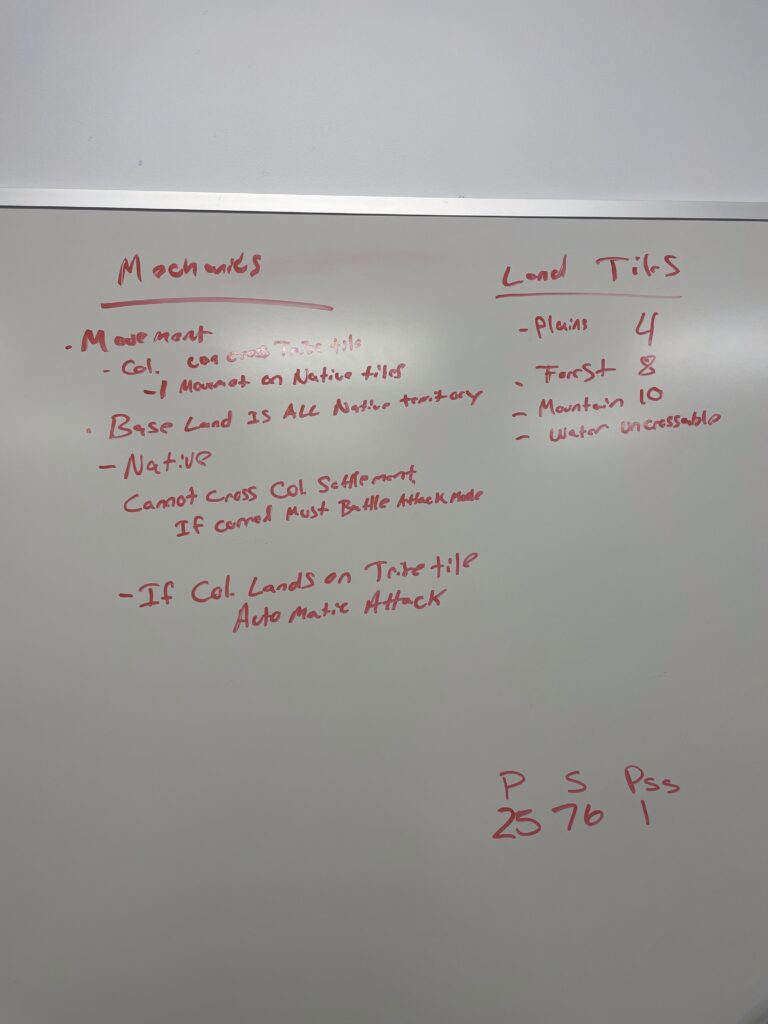 Mechanics
- Movement
- Col. can cross Tribe tile
-1 Movment on Native tiles
- Base Land Is All Native territory
- Native
Cannot Cross Col. Settlement
If Must Battle Attack Mode
- If Col. Lands on Tribe tile
Automatic Attack
Land Tiles
- Plains 4
- Forest 8
- Mountain 10
- Water uncrossable
P S Pss
25 76 1